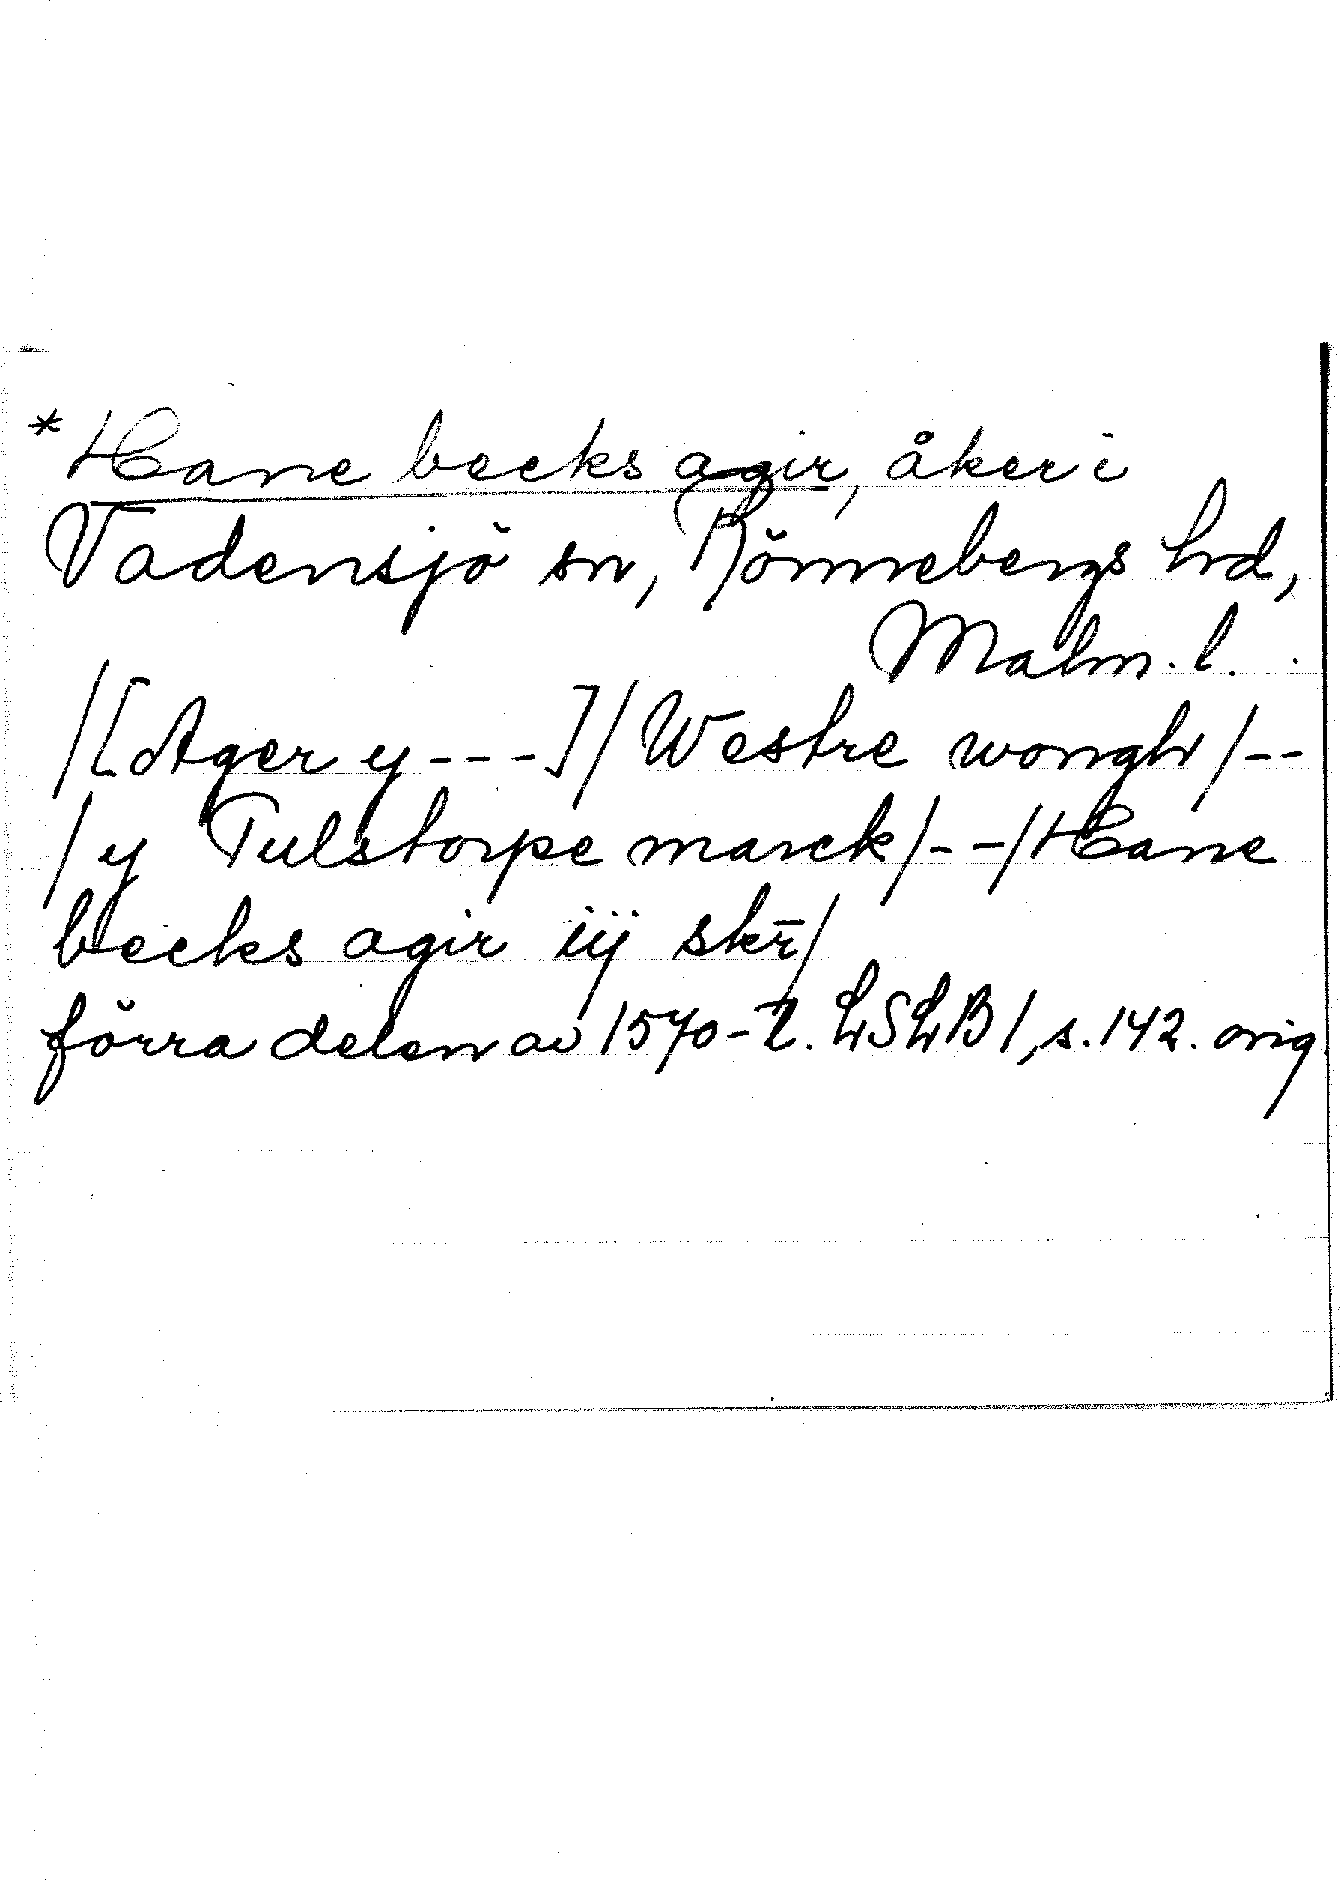 *Hane becks agir, åker i
Vadensjö sn, Rönnebergs hd,
Malm. l.
/[Ager y ---]/Westre wongh/--
/y Tulstorpe marck/--/Hane
becks agir iij skr̄/
förra delen av 1570-t. LSLB 1, s. 142. orig